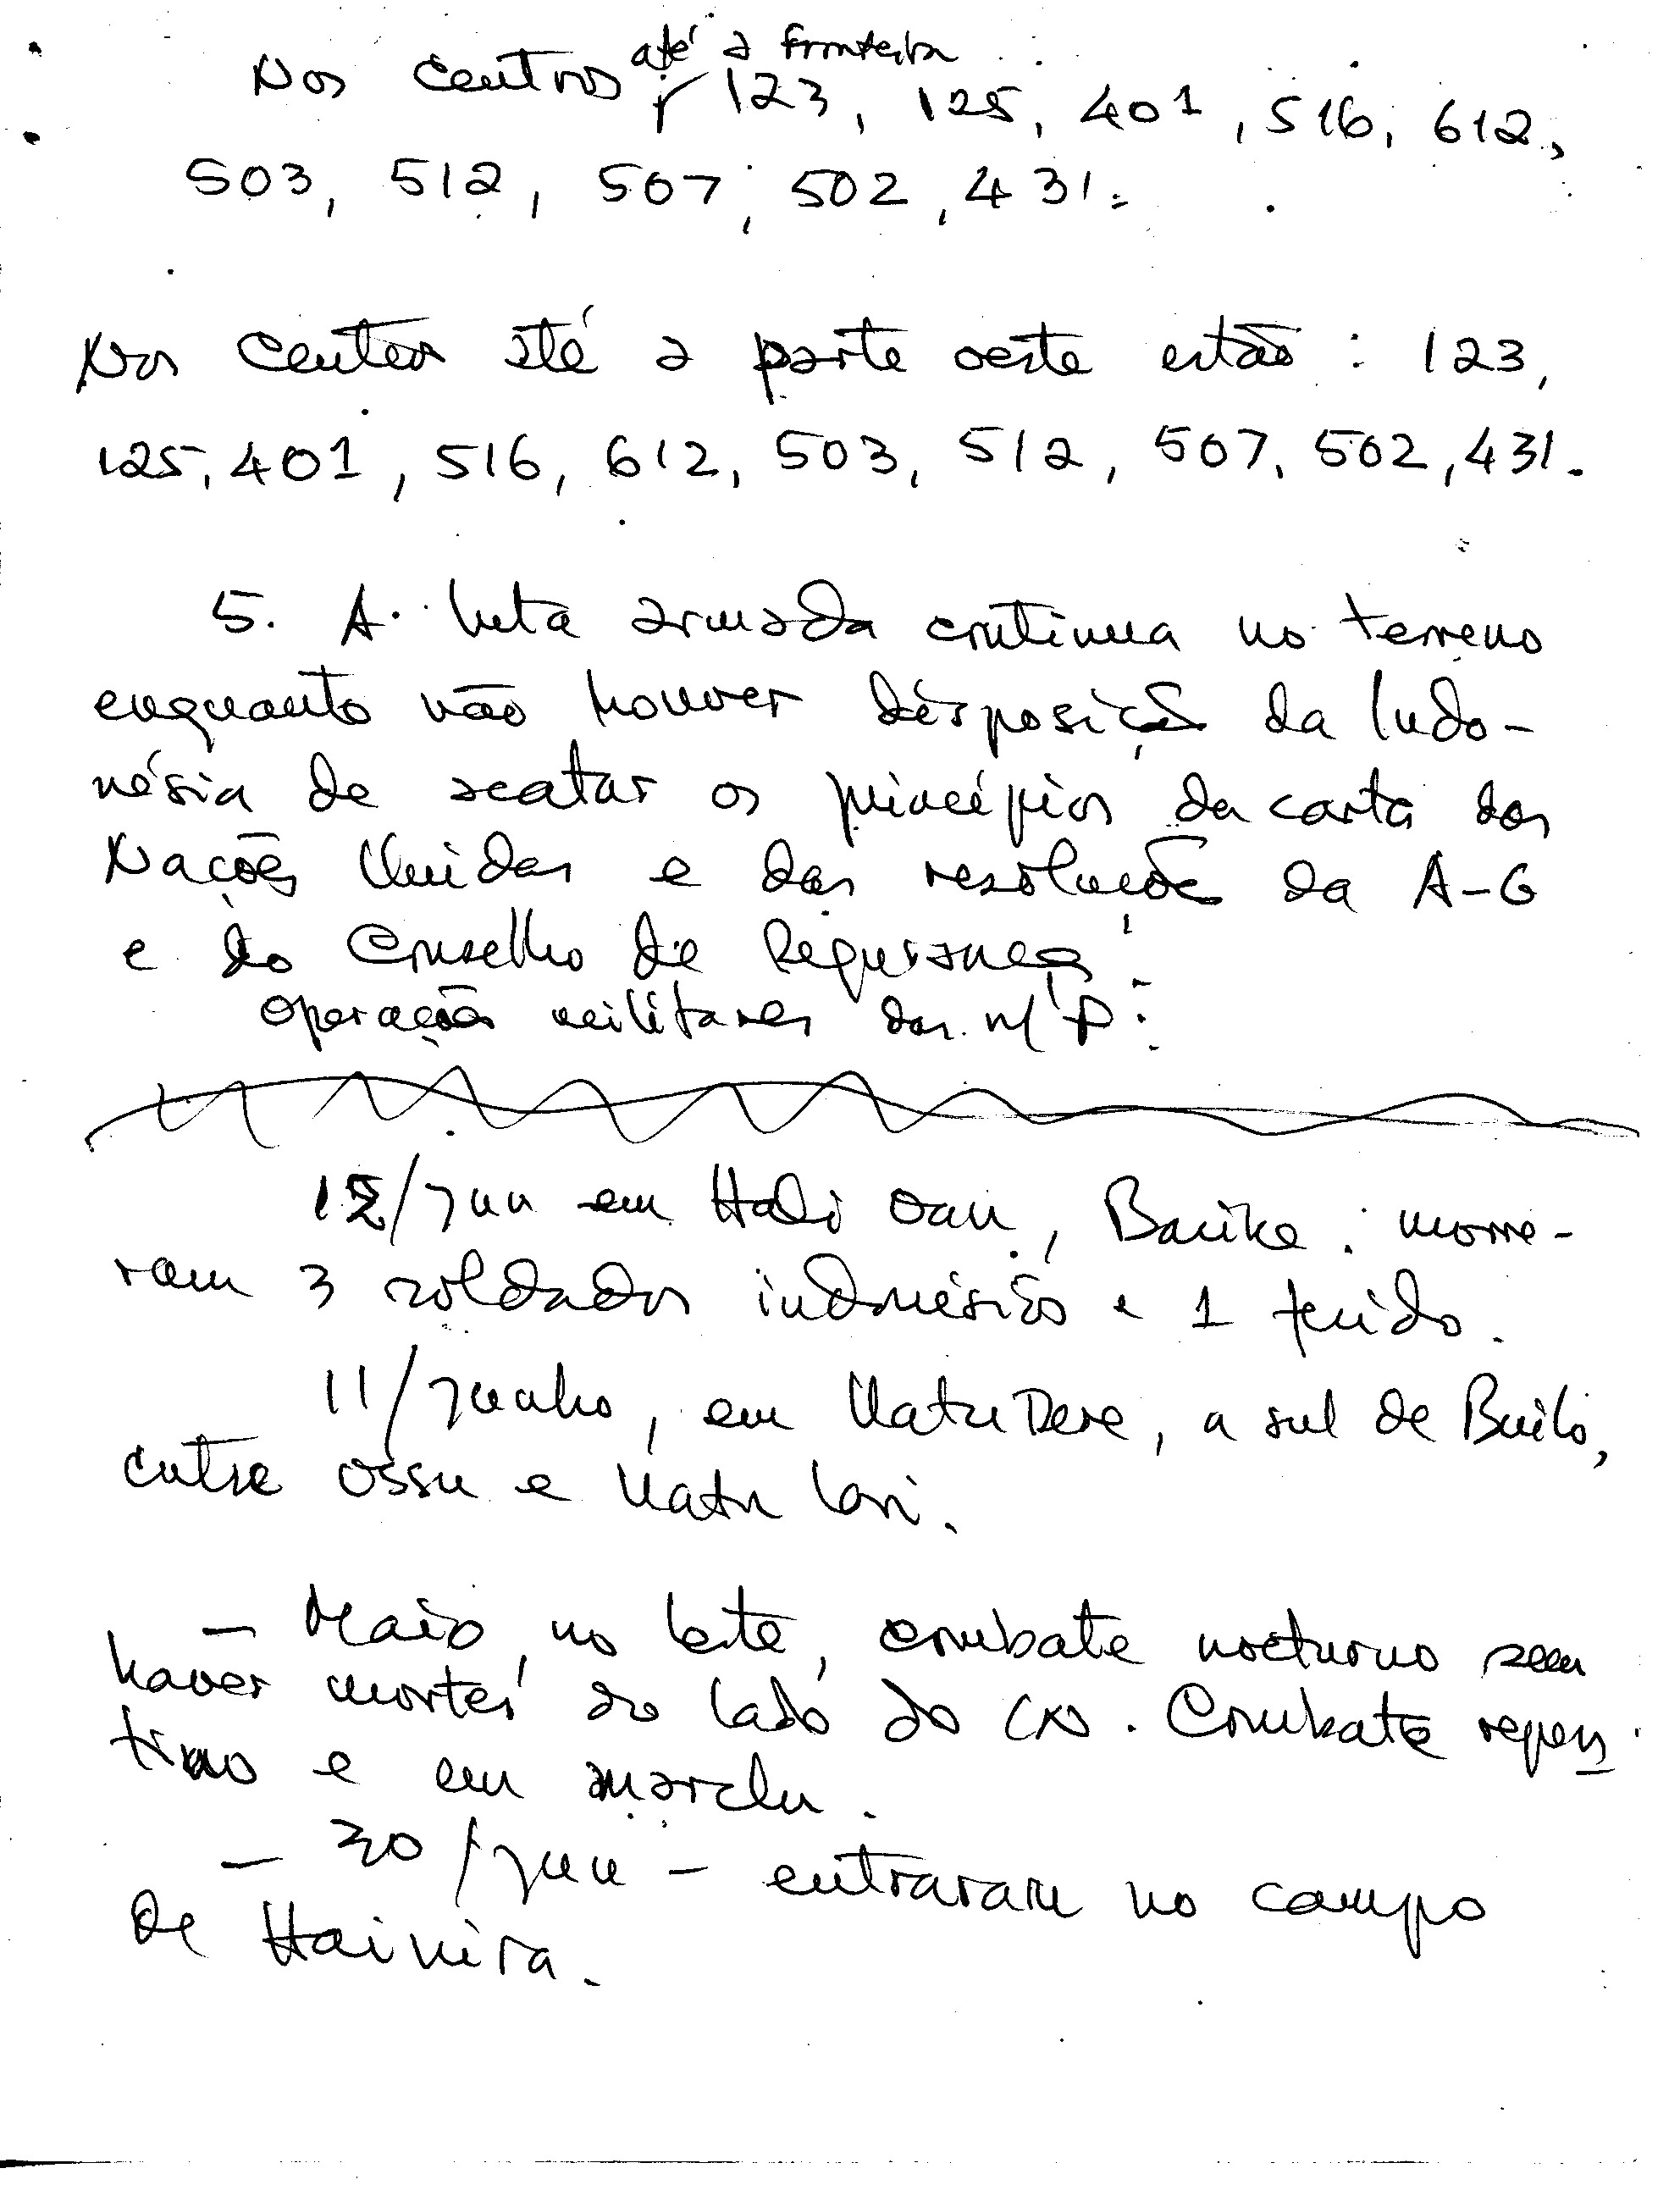 Nos centros até a fronteira 123, 125, 401, 516, 612,
503, 512, 507, 502, 431.
Nos centros até a parte oeste estão: 123,
125, 401, 516, 612, 503, 512, 507, 502, 431.
5. A luta armada continua no terreno
enquanto não houver disposição da Indo-
nésia de acatar os princípios da carta das
Nações Unidas e das resoluções da A-G
e do Conselho de Segurança.
Operações militares das n/ P:
12/Jun em Hali Oan, Barike: morre-
ram 3 soldados indonésios e 1 ferido.
11/Junho, em UatuDere, a sul de Builó,
entre Ossu e Uatu Lari.
- Maio, no leste, combate nocturno sem
haver mortes do lado do CN. Combate repen
tino e em marcha.
- 30/Jun - entraram no campo
de Hainira.